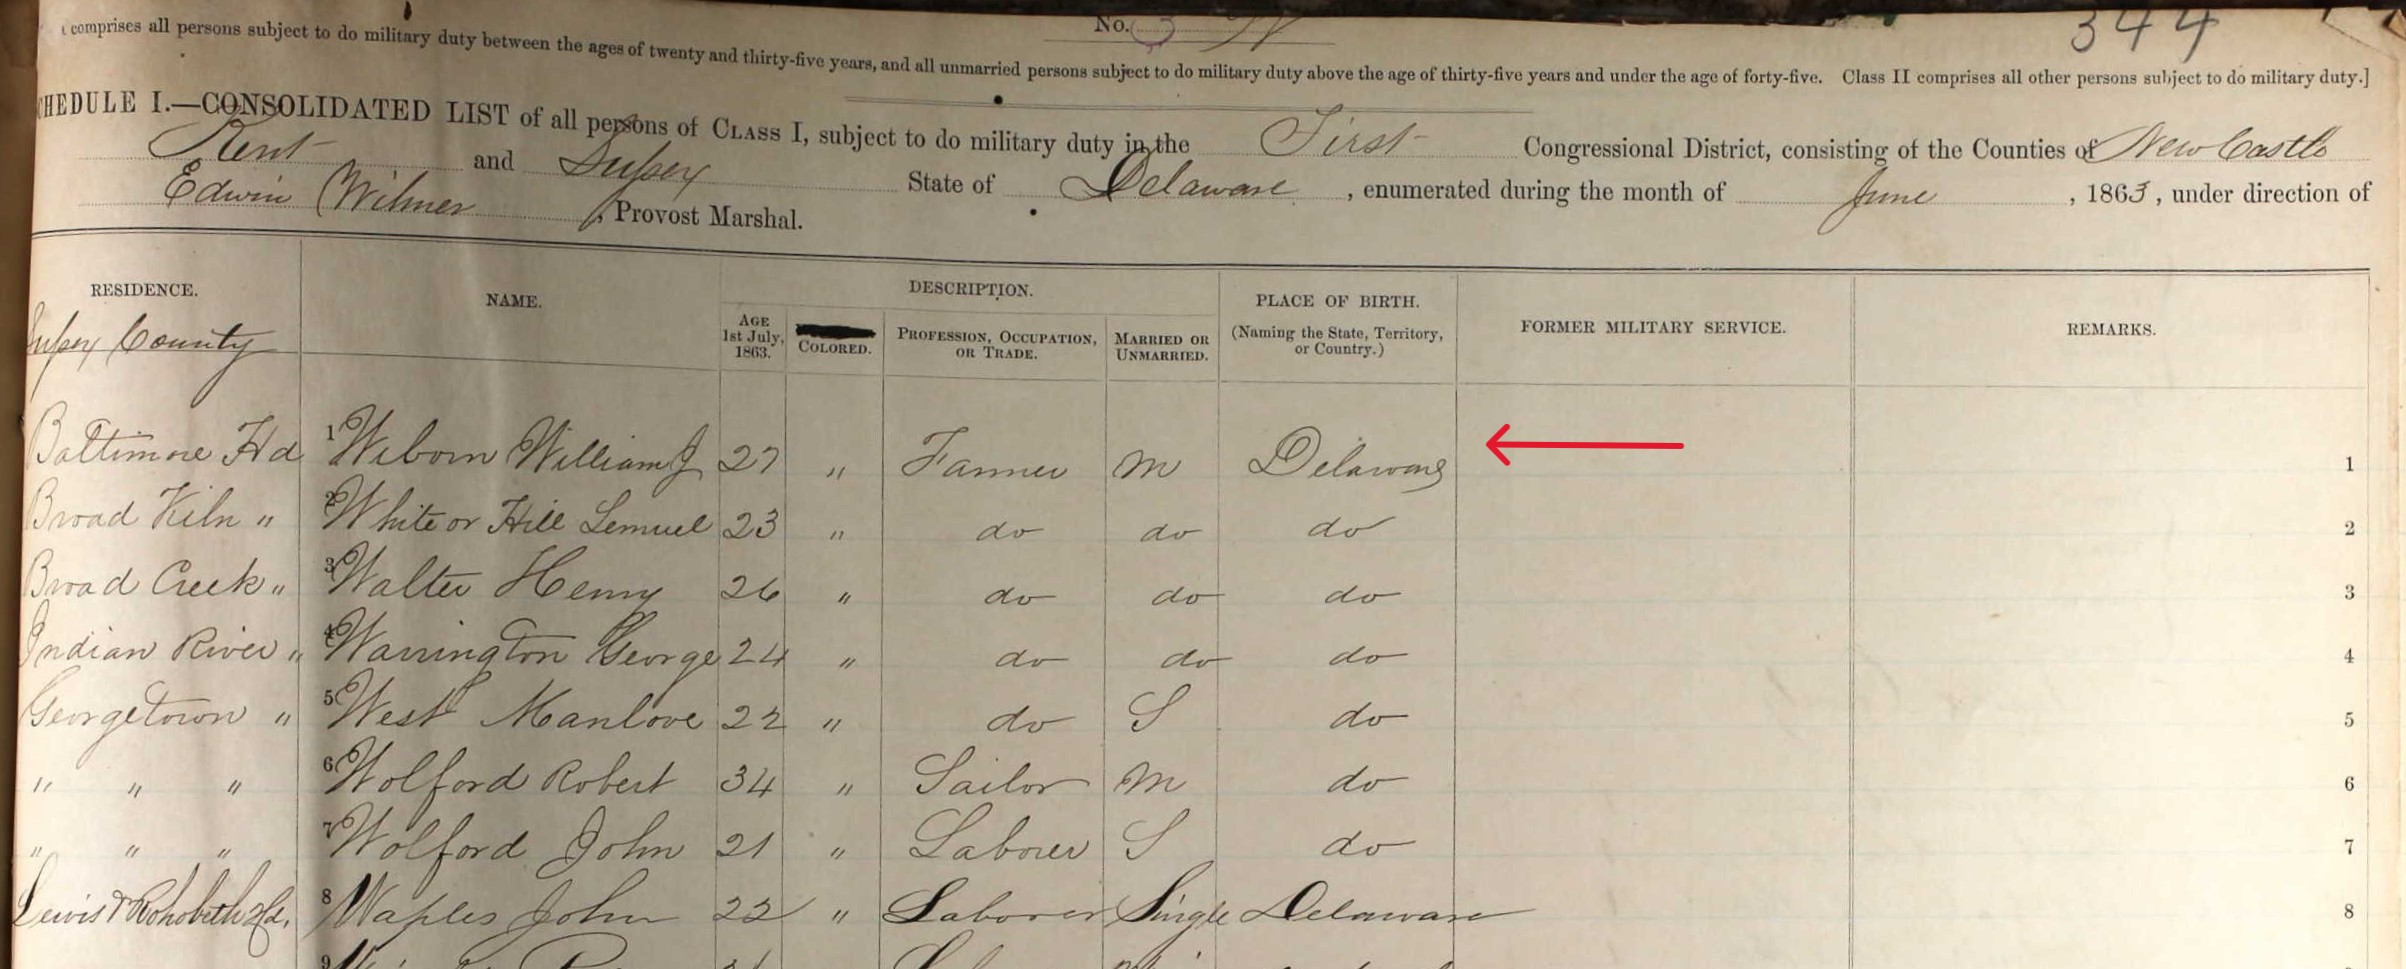 No. 3
344
comprises all persons subject to do military duty between the ages of twenty and thirty-five years, and all unmarried persons subject to do military duty above the age of thirty-five years and under the age of forty-five. Class II comprises all other persons subject to do military duty.]
HEDULE I.—CONSOLIDATED LIST of all persons of Class I, subject to do military duty in the First Congressional District, consisting of the Counties of New Castle
Kent and Sussex State of Delaware, enumerated during the month of June, 1863, under direction of
Edwin Wilmer, Provost Marshal.
RESIDENCE. NAME. DESCRIPTION. PLACE OF BIRTH. FORMER MILITARY SERVICE. REMARKS.
Age 1st July, 1863. Colored. Profession, Occupation, or Trade. Married or Unmarried. (Naming the State, Territory, or Country.)
Sussex County
Baltimore Hd 1 Wiborn William J 27 " Farmer M Delaware 1
Broad Kiln " 2 White or Hill Lemuel 23 " do do do 2
Broad Creek " 3 Walter Henry 26 " do do do 3
Indian River " 4 Warrington George 24 " do do do 4
Georgetown " 5 West Manlove 22 " do S do 5
" " " 6 Wolford Robert 34 " Sailor M do 6
" " " 7 Wolford John 21 " Laborer S do 7
Lewis & Rohobeth Hd. 8 Waples John 22 " Laborer Single Delaware 8
9